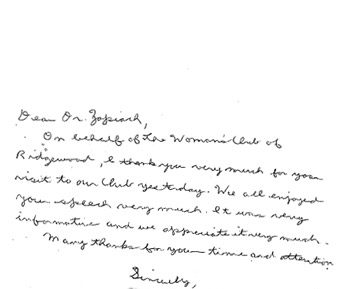 Dear Dr. Zapiach,
On behalf of the Woman's Club of
Ridgewood, I thank you very much for your
visit to our Club yesterday. We all enjoyed
your speech very much. It was very
informative and we appreciate it very much.
Many thanks for your time and attention
Sincerely,